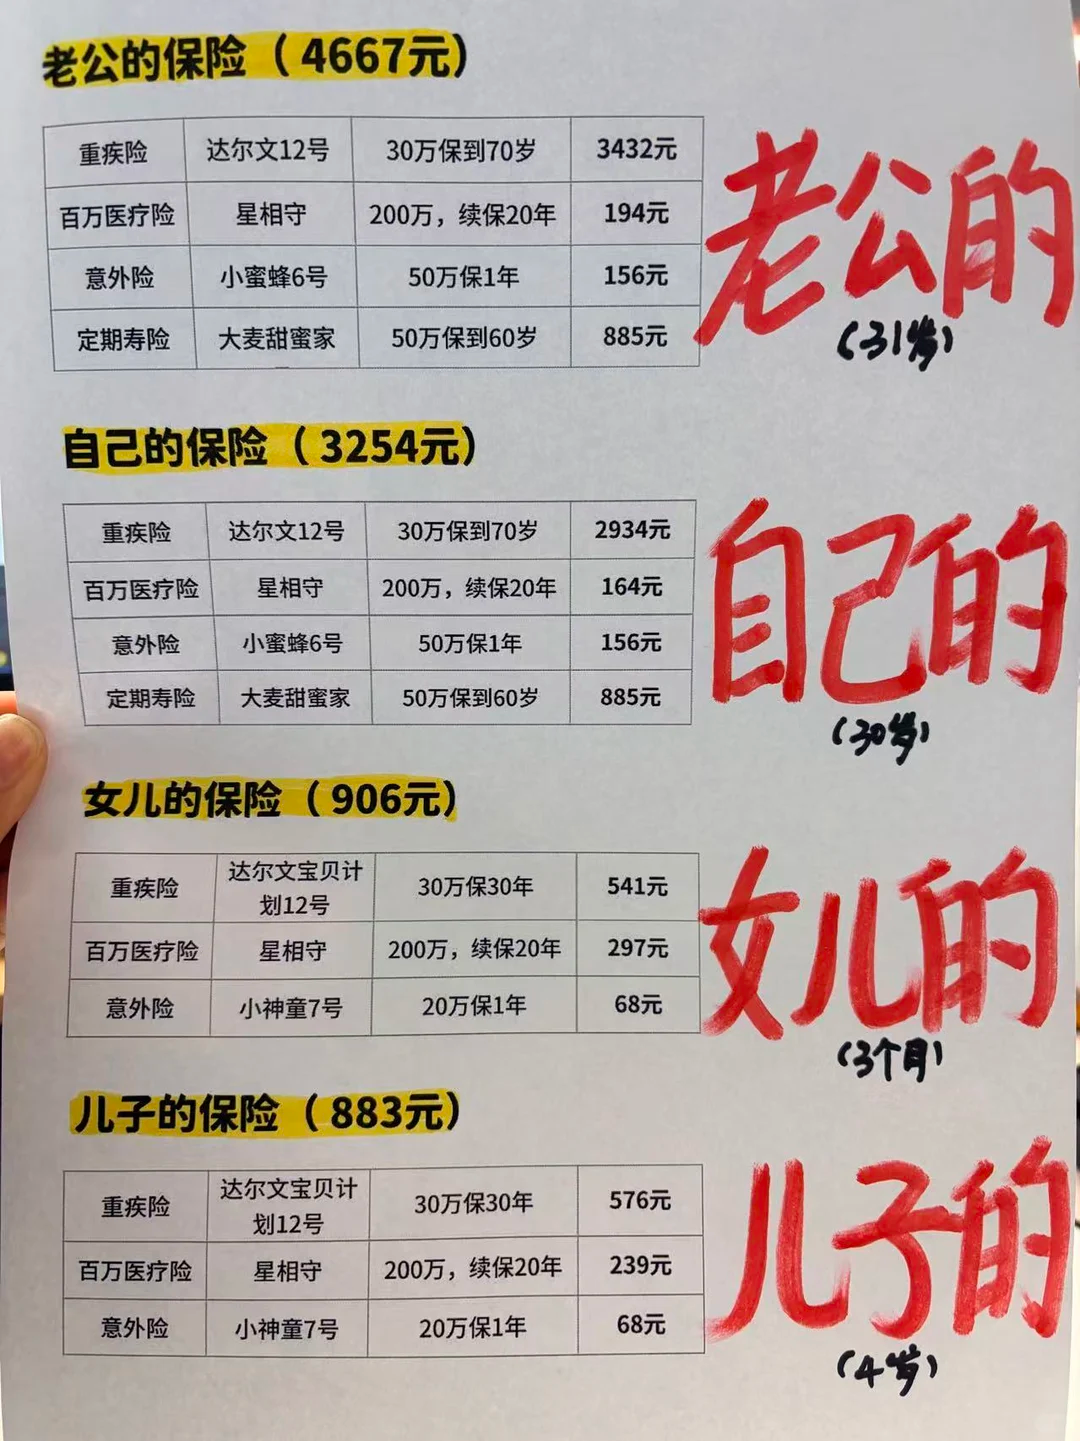 老公的保险（4667元）
重疾险 达尔文12号 30万保到70岁 3432元
百万医疗险 星相守 200万，续保20年 194元
意外险 小蜜蜂6号 50万保1年 156元
定期寿险 大麦甜蜜家 50万保到60岁 885元
老公的
（31岁）
自己的保险（3254元）
重疾险 达尔文12号 30万保到70岁 2934元
百万医疗险 星相守 200万，续保20年 164元
意外险 小蜜蜂6号 50万保1年 156元
定期寿险 大麦甜蜜家 50万保到60岁 885元
自己的
（30岁）
女儿的保险（906元）
重疾险 达尔文宝贝计划12号 30万保30年 541元
百万医疗险 星相守 200万，续保20年 297元
意外险 小神童7号 20万保1年 68元
女儿的
（3个月）
儿子的保险（883元）
重疾险 达尔文宝贝计划12号 30万保30年 576元
百万医疗险 星相守 200万，续保20年 239元
意外险 小神童7号 20万保1年 68元
儿子的
（4岁）